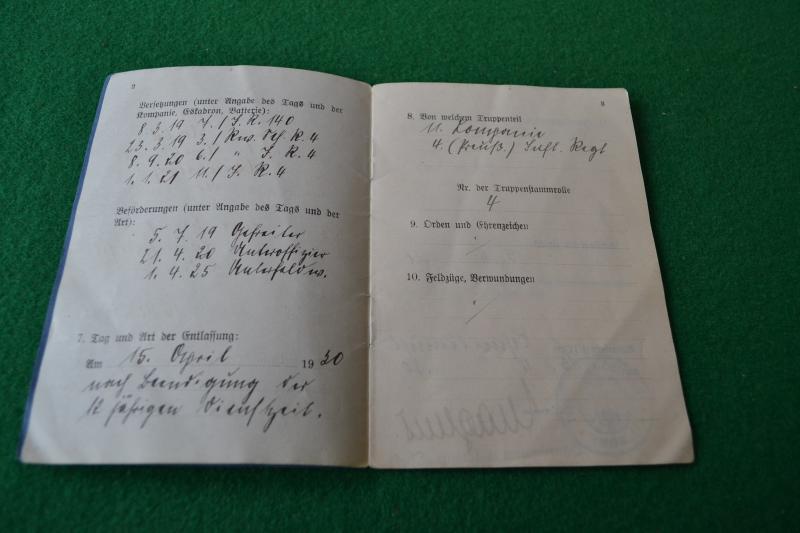 2
Versetzungen (unter Angabe des Tags und der
Kompanie, Eskadron, Batterie):
8. 3. 19 7./ I. R. 140
23. 3. 19 3./ Rw. R. 4
8. 9. 20 6./ " I. R. 4
1. 1. 21 11./ I. R. 4
Beförderungen (unter Angabe des Tags und der
Art):
5. 7. 19 Gefreiter
21. 4. 20 Unteroffizier
1. 4. 25 Unterfeldw.
7. Tag und Art der Entlassung:
Am 15. April 1930
nach Beendigung der
12 jährigen Dienstzeit.
8. Von welchem Truppenteil
11. Kompanie
4. (Preuß.) Inft. Regt
Nr. der Truppenstammrolle
4
9. Orden und Ehrenzeichen
10. Feldzüge, Verwundungen